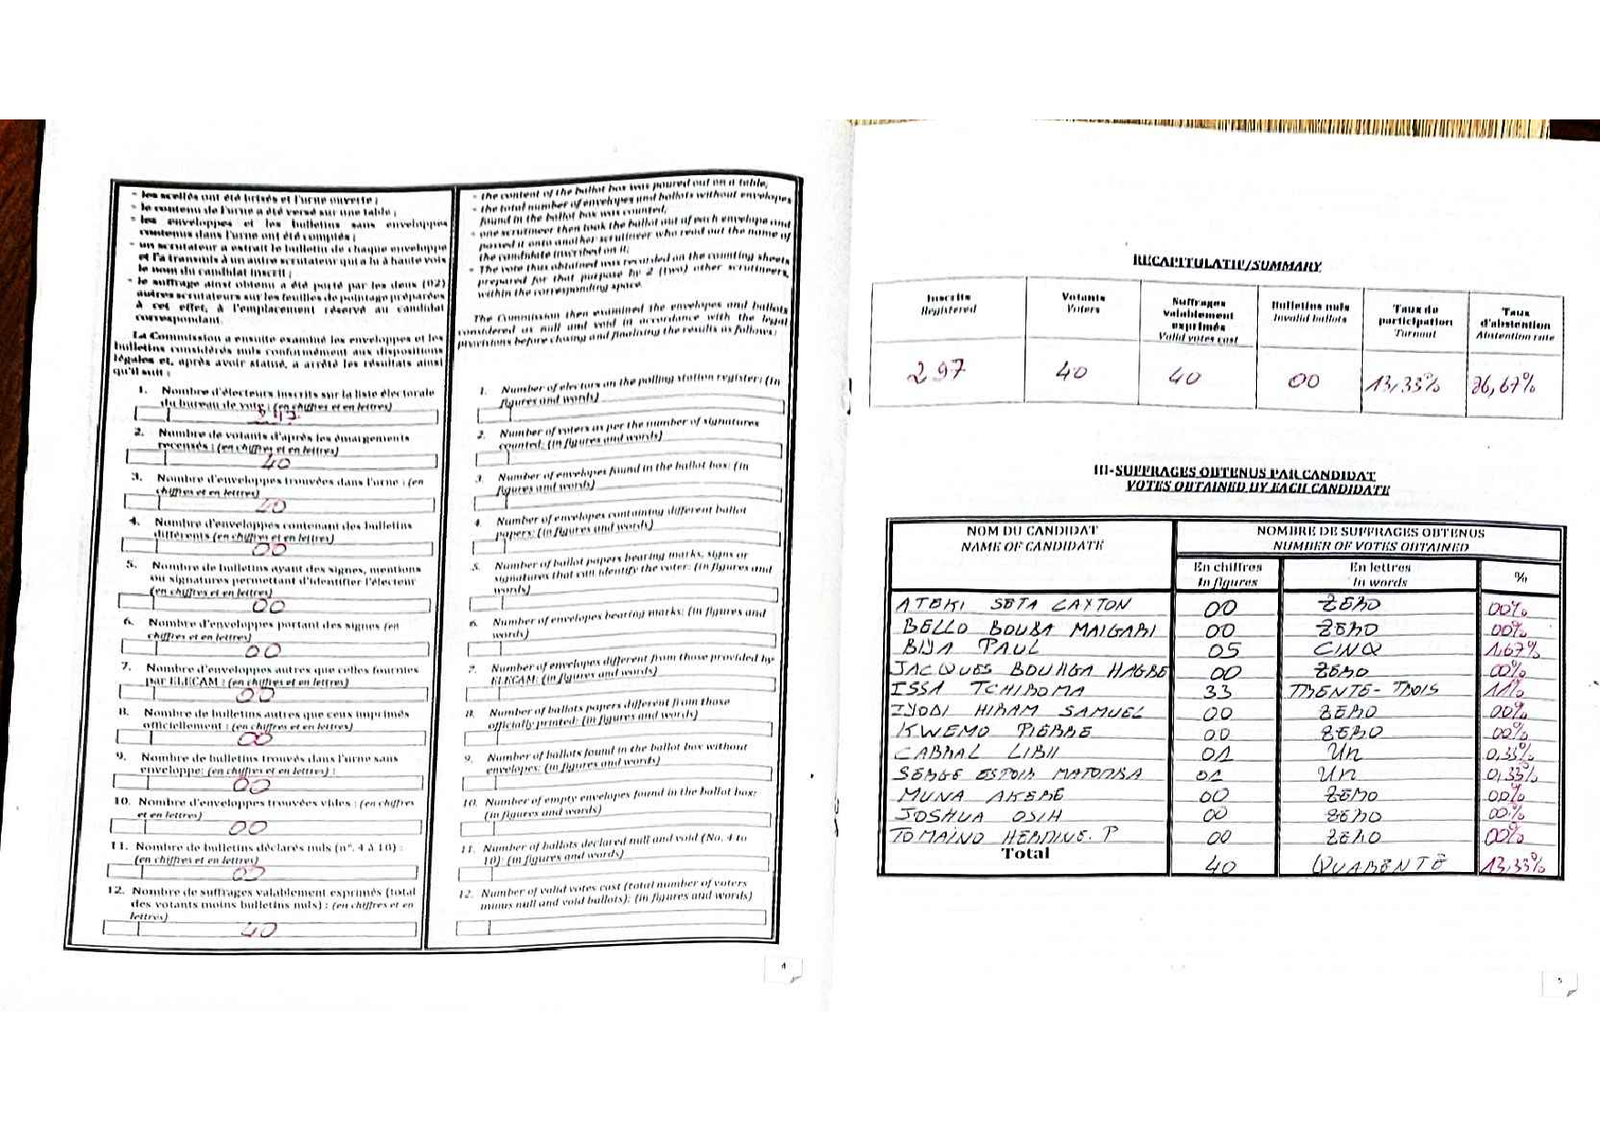 - les scellés ont été brisés et l'urne ouverte ;
- le contenu de l'urne a été versé sur une table ;
- les enveloppes et les bulletins sans enveloppes
contenus dans l'urne ont été comptés ;
- un scrutateur a extrait le bulletin de chaque enveloppe
et l'a transmis à un autre scrutateur qui a lu à haute voix
le nom du candidat inscrit ;
- le suffrage ainsi obtenu a été porté par les deux (02)
autres scrutateurs sur les feuilles de pointage préparées
à cet effet, à l'emplacement réservé au candidat
correspondant.
La Commission a ensuite examiné les enveloppes et les
bulletins considérés nuls conformément aux dispositions
légales et, après avoir statué, a arrêté les résultats ainsi
qu'il suit :
1. Nombre d'électeurs inscrits sur la liste électorale
du bureau de vote : (en chiffres et en lettres)
2. Nombre de votants d'après les émargements
recensés : (en chiffres et en lettres)
40
3. Nombre d'enveloppes trouvées dans l'urne : (en
chiffres et en lettres)
40
4. Nombre d'enveloppes contenant des bulletins
différents (en chiffres et en lettres)
00
5. Nombre de bulletins ayant des signes, mentions
ou signatures permettant d'identifier l'électeur
(en chiffres et en lettres)
00
6. Nombre d'enveloppes portant des signes (en
chiffres et en lettres)
00
7. Nombre d'enveloppes autres que celles fournies
par ELECAM : (en chiffres et en lettres)
00
8. Nombre de bulletins autres que ceux imprimés
officiellement : (en chiffres et en lettres)
00
9. Nombre de bulletins trouvés dans l'urne sans
enveloppe: (en chiffres et en lettres) :
00
10. Nombre d'enveloppes trouvées vides : (en chiffres
et en lettres)
00
11. Nombre de bulletins déclarés nuls (n°. 4 à 10) :
(en chiffres et en lettres)
00
12. Nombre de suffrages valablement exprimés (total
des votants moins bulletins nuls) : (en chiffres et en
lettres)
40
- the content of the ballot box was poured out on a table;
- the total number of envelopes and ballots without envelopes
found in the ballot box was counted;
- one scrutineer then took the ballot out of each envelope and
passed it onto another scrutineer who read out the name of
the candidate inscribed on it;
- The vote thus obtained was recorded on the counting sheets
prepared for that purpose by 2 (two) other scrutineers,
within the corresponding space.
The Commission then examined the envelopes and ballots
considered as null and void in accordance with the legal
provisions before closing and finalising the results as follows :
1. Number of electors on the polling station register: (in
figures and words)
2. Number of voters as per the number of signatures
counted: (in figures and words)
3. Number of envelopes found in the ballot box: (in
figures and words)
4. Number of envelopes containing different ballot
papers: (in figures and words)
5. Number of ballot papers bearing marks, signs or
signatures that can identify the voter: (in figures and
words)
6. Number of envelopes bearing marks: (in figures and
words)
7. Number of envelopes different from those provided by
ELECAM: (in figures and words)
8. Number of ballots papers different from those
officially printed: (in figures and words)
9. Number of ballots found in the ballot box without
envelopes: (in figures and words)
10. Number of empty envelopes found in the ballot box:
(in figures and words)
11. Number of ballots declared null and void (No. 4 to
10): (in figures and words)
12. Number of valid votes cast (total number of voters
minus null and void ballots): (in figures and words)
4
RECAPITULATIF/SUMMARY
Inscrits Registered | Votants Voters | Suffrages valablement exprimés Valid votes cast | Bulletins nuls Invalid ballots | Taux de participation Turnout | Taux d'abstention Abstention rate
297 | 40 | 40 | 00 | 13,33% | 86,67%
III-SUFFRAGES OBTENUS PAR CANDIDAT
VOTES OBTAINED BY EACH CANDIDATE
NOM DU CANDIDAT NOMBRE DE SUFFRAGES OBTENUS
NAME OF CANDIDATE NUMBER OF VOTES OBTAINED
En chiffres En lettres %
In figures In words
ATEKI SETA CAXTON 00 ZERO 00%
BELLO BOUBA MAIGARI 00 ZERO 00%
BIYA PAUL 05 CINQ 1,67%
JACQUES BOUHGA HAGBE 00 ZERO 00%
ISSA TCHIROMA 33 TRENTE-TROIS 11%
IYODI HIRAM SAMUEL 00 ZERO 00%
KWEMO PIERRE 00 ZERO 00%
CABRAL LIBII 01 UN 0,33%
SERGE ESPOIR MATOMBA 01 UN 0,33%
MUNA AKERE 00 ZERO 00%
JOSHUA OSIH 00 ZERO 00%
TOMAINO HERMINE.P 00 ZERO 00%
Total 40 QUARENTE 13,33%
5